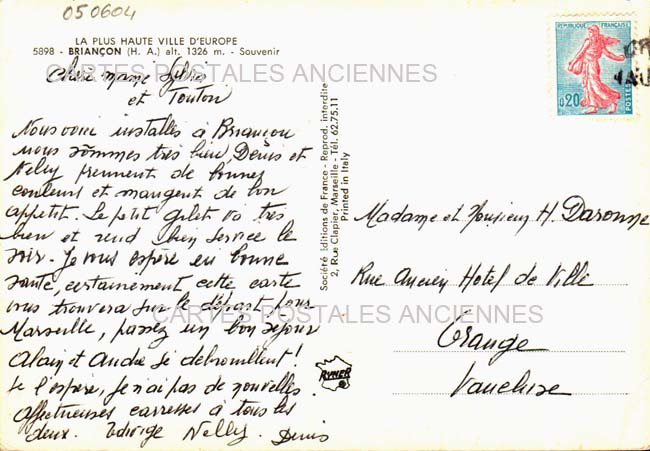 050604
LA PLUS HAUTE VILLE D'EUROPE
5898 - BRIANÇON (H. A.) alt. 1326 m. - Souvenir
CARTES POSTALES ANCIENNES
et Tonton
Nous voici installés à Briançon
nous sommes très bien, Denis et
Nelly prennent de bonnes
couleurs et mangent de bon
appetit. Le petit gilet va très
bien et rend bien service le
soir. Je vous espère en bonne
santé, certainement cette carte
vous trouvera sur le départ pour
Marseille, passez un bon séjour
Alain et André se débrouillent!
Je l'espère, je n'ai pas de nouvelles.
affectueuses caresses à tous les
deux. Edwige Nelly. Denis
Société Editions de France - Reprod. interdite
2, Rue Clapier, Marseille - Tél. 62.75.11
Printed in Italy
RYNER
REPUBLIQUE FRANÇAISE
0,20
POSTES
Madame et Monsieur H. Daronne
Rue Ancien Hotel de Ville
CARTES POSTALES ANCIENNES
Orange
Vaucluse